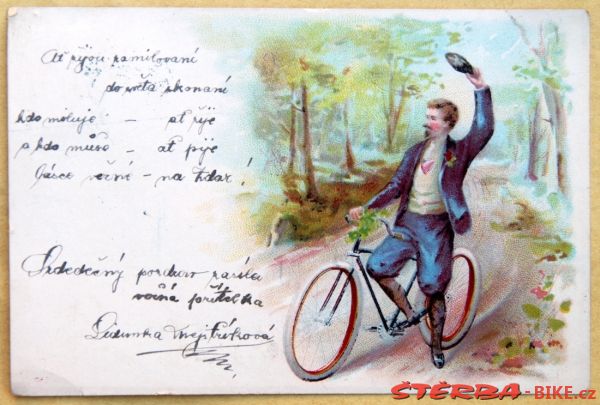 Ať žijou zamilovaní
do světa skonání
kdo miluje – ať žije
a kdo může – ať pije
lásce věrní – na zdar!
Srdečný pozdrav zasílá
věrná přítelka
ŠTĚRBA-BIKE.cz